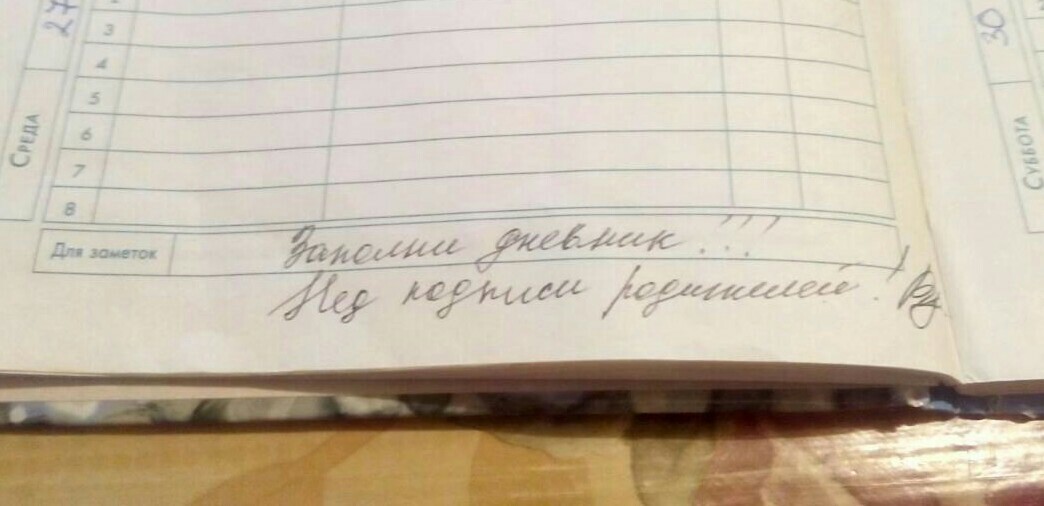 27
СРЕДА
3
4
5
6
7
8
Для заметок
Заполни дневник!!!
Нед подписи родителей!
30
СУББОТА